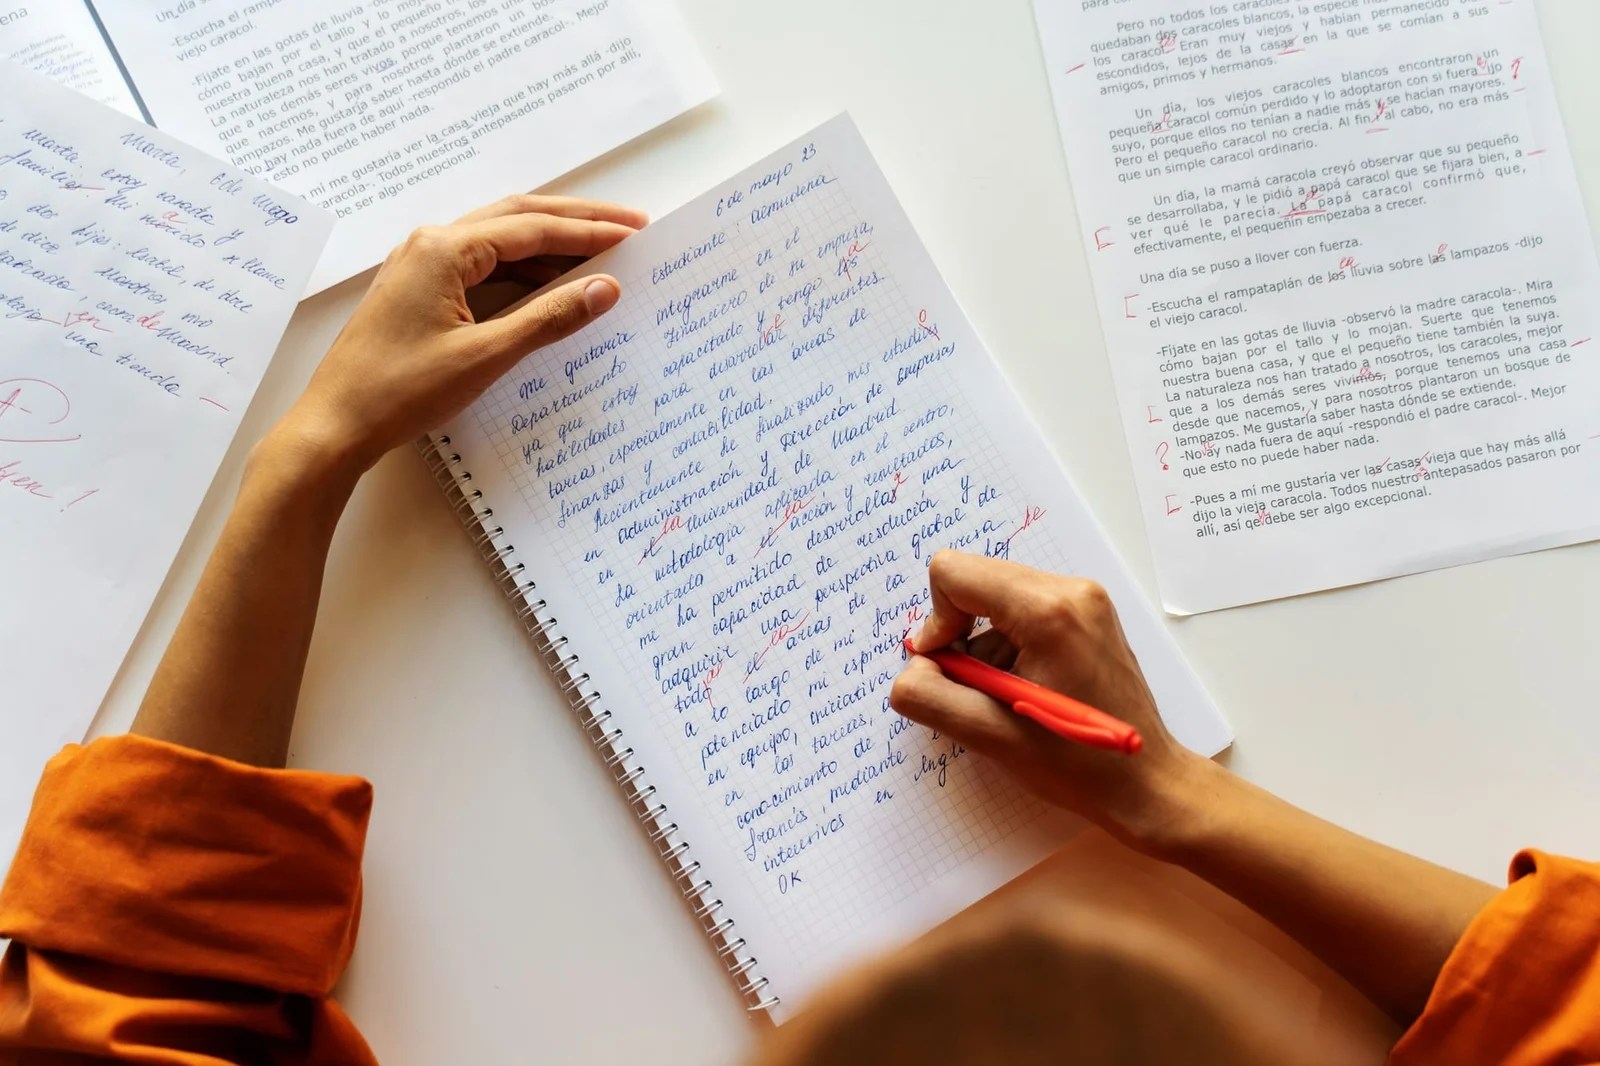 Un día se
-Escucha el rampata
viejo caracol.
-Fíjate en las gotas de lluvia -ob
cómo bajan por el tallo y lo mojan.
nuestra buena casa, y que el pequeño
La naturaleza nos han tratado a nosotros, los
que a los demás seres vivos, porque tenemos un
nacemos, y para nosotros plantaron un bos
lampazos. Me gustaría saber hasta dónde se extiende.
No hay nada fuera de aquí -respondió el padre caracol-. Mejor
esto no puede haber nada.
mi me gustaría ver la casa vieja que hay más allá -dijo
caracola-. Todos nuestros antepasados pasaron por allí,
be ser algo excepcional.
marta, 6 de mayo
marta. estoy casada y
familia. mi marido
a
dos hijos:
de doce
nosotros
en
de Madrid.
una tienda
A-
6 de mayo 23
Estudiante: almudena
Me gustaría integrarme en el
Departamento Financiero de su empresa,
ya que estoy capacitado y tengo las
habilidades para desarrollar diferentes
tareas, especialmente en las áreas de
finanzas y contabilidad.
Recientemente he finalizado mis estudios
en administración y Dirección de empresas
en el la Universidad de Madrid.
La metodología aplicada en el centro,
orientada a el la acción y resultados,
me ha permitido desarrollar una
gran capacidad de resolución y
adquirir una perspectiva global de
todo as el la áreas de la empresa. he
a lo largo de mi formac
potenciado mi espíritu
en equipo, iniciativa
en las tareas, a
conocimiento de idi
francés, mediante
intensivos en Ingl
OK
para co
Pero no todos los caracoles
quedaban dos caracoles blancos, la especie más
los caracol. Eran muy viejos y habían permanecido
escondidos, lejos de la casas en la que se comían a sus
amigos, primos y hermanos.
Un día, los viejos caracoles blancos encontraron un
pequeña caracol común perdido y lo adoptaron con si fuera ijo
suyo, porque ellos no tenían a nadie más y se hacían mayores.
Pero el pequeño caracol no crecía. Al fin y al cabo, no era más
que un simple caracol ordinario.
Un día, la mamá caracola creyó observar que su pequeño
se desarrollaba, y le pidió a papá caracol que se fijara bien, a
ver qué le parecía. La papá caracol confirmó que,
efectivamente, el pequeñín empezaba a crecer.
Una día se puso a llover con fuerza.
-Escucha el rampataplán de los la lluvia sobre las lampazos -dijo
el viejo caracol.
-Fíjate en las gotas de lluvia -observó la madre caracola-. Mira
cómo bajan por el tallo y lo mojan. Suerte que tenemos
nuestra buena casa, y que el pequeño tiene también la suya.
La naturaleza nos han tratado a nosotros, los caracoles, mejor
que a los demás seres vivimos, porque tenemos una casa
desde que nacemos, y para nosotros plantaron un bosque de
lampazos. Me gustaría saber hasta dónde se extiende.
-No ay nada fuera de aquí -respondió el padre caracol-. Mejor
que esto no puede haber nada.
-Pues a mí me gustaría ver las casas vieja que hay más allá
dijo la vieja caracola. Todos nuestro antepasados pasaron por
allí, así qe debe ser algo excepcional.